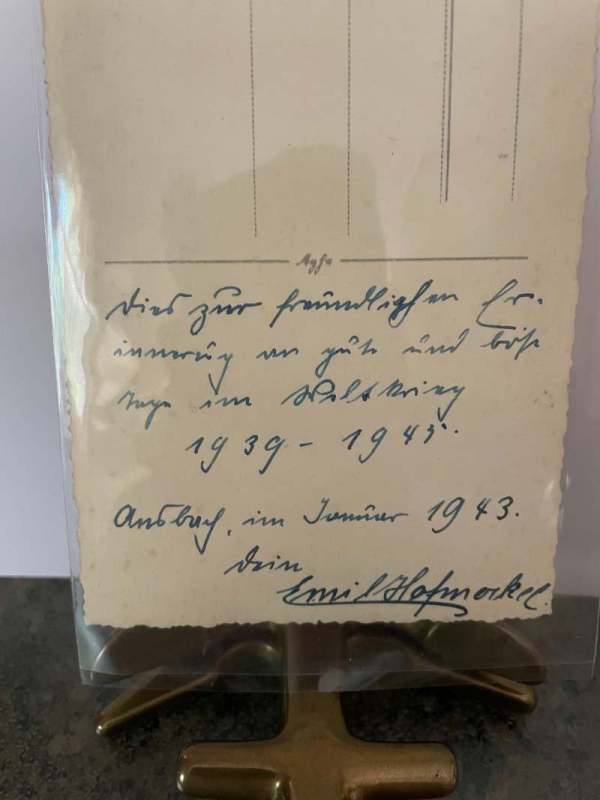 Agfa
Dies zur freundlichen Er-
innerung an gute und böse
Tage im Weltkrieg
1939 - 1945.
Ansbach, im Januar 1943.
Dein
Emil Hofmockel.